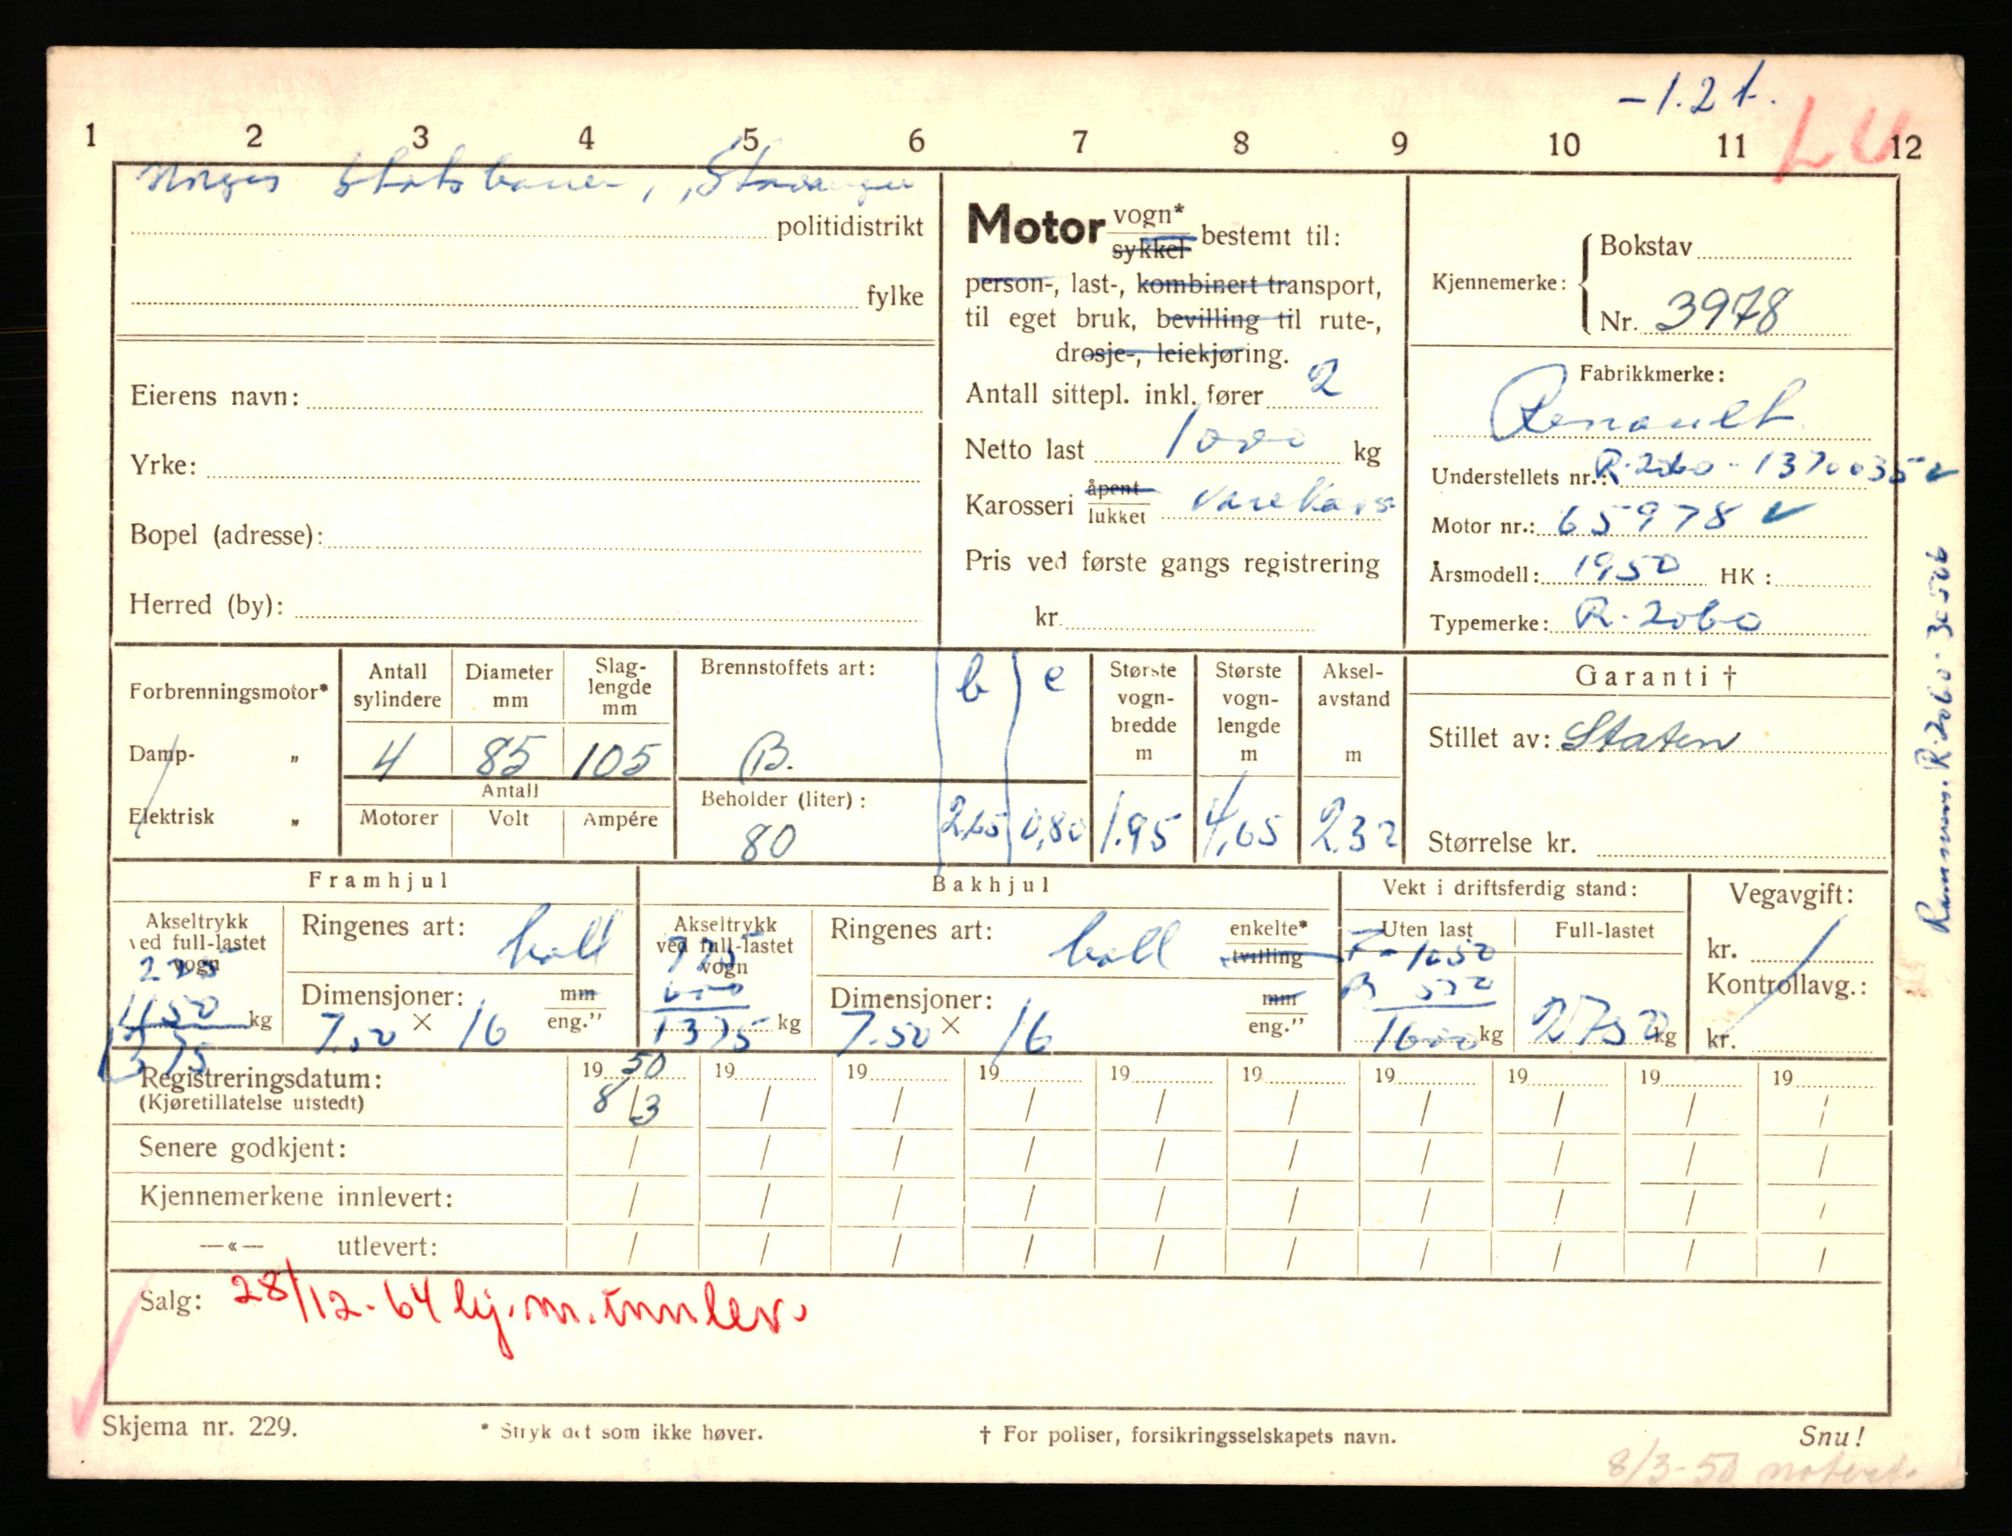 -1.2 t.
LU
1 2 3 4 5 6 7 8 9 10 11 12
Norges Statsbaner, Stavanger
politidistrikt
fylke
Eierens navn:
Yrke:
Bopel (adresse):
Herred (by):
Motor vogn* sykkel bestemt til:
person-, last-, kombinert transport,
til eget bruk, bevilling til rute-,
drosje-, leiekjøring.
Antall sittepl. inkl. fører 2
Netto last 1000 kg
Karosseri åpent lukket varekass
Pris ved første gangs registrering
kr.
Kjennemerke: Bokstav
Nr. 3978
Fabrikkmerke:
Renault
Understellets nr.: R-2060-1370035
Motor nr.: 65978
Årsmodell: 1950 HK:
Typemerke: R-2060
Forbrenningsmotor*
Damp- „
Elektrisk „
Antall sylindere 4
Diameter mm 85
Slag-lengde mm 105
Antall
Motorer Volt Ampére
Brennstoffets art: B.
Beholder (liter): 80
b 2,65
e 0,80
Største vogn-bredde m 1.95
Største vogn-lengde m 4,65
Aksel-avstand m 2.32
Garanti †
Stillet av: Staten
Størrelse kr.
Framhjul
Akseltrykk ved full-lastet vogn
225
1150 kg
1375
Ringenes art: ball
Dimensjoner: 7.50 × 16 mm eng."
Bakhjul
Akseltrykk ved full-lastet vogn
775
600
1375 kg
Ringenes art: ball enkelte* tvilling
Dimensjoner: 7.50 × 16 mm eng."
Vekt i driftsferdig stand:
Uten last Full-lastet
F-1050
B 550
1600 kg 2750 kg
Vegavgift:
kr.
Kontrollavg.:
kr.
Ramnum. R-2060-30506
Registreringsdatum: 1950 19 19 19 19 19 19 19 19 19
(Kjøretillatelse utstedt) 8/3 / / / / / / / / /
Senere godkjent: / / / / / / / / / /
Kjennemerkene innlevert: / / / / / / / / / /
—«— utlevert: / / / / / / / / / /
Salg: 28/12-64 kj.m. innlev.
Skjema nr. 229.
* Stryk det som ikke høver.
† For poliser, forsikringsselskapets navn.
Snu!
8/3-50 notert.